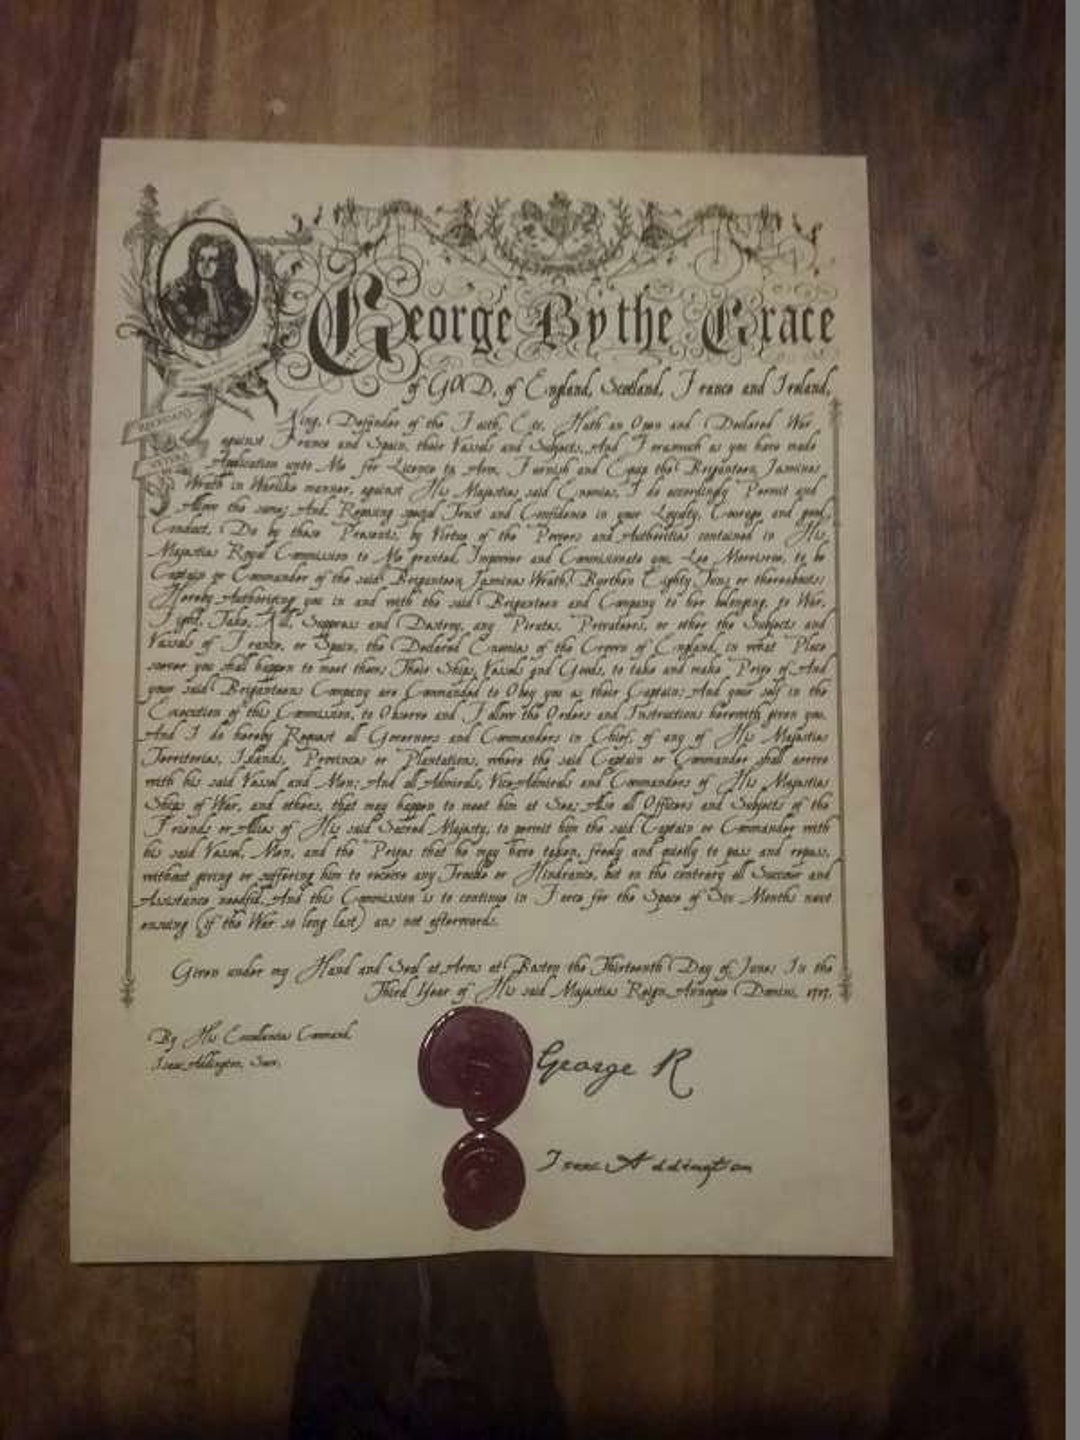 George By the Grace
of GOD, of England, Scotland, France and Ireland,
King, Defender of the Faith, Etc. Hath an Open and Declared War
against France and Spain, their Vassals and Subjects. And Forasmuch as you have made
Application unto Me for Licence to Arm, Furnish and Equip the Briganteen, Jasmines
Wrath in Warlike manner, against His Majesties said Enemies, I do accordingly Permit and
Allow the same; And, Reposing special Trust and Confidence in your Loyalty, Courage and good
Conduct, Do by these Presents, by Virtue of the Powers and Authorities contained in His
Majesties Royal Commission to Me granted, Impower and Commissionate you, Lee Morrisroe, to be
Captain or Commander of the said Briganteen Jasmines Wrath, Burthen Eighty Tuns or thereabouts:
Hereby Authorising you in and with the said Briganteen and Company to her belonging, to War,
Fight, Take, Kill, Suppress and Destroy, any Pirates, Privateers, or other the Subjects and
Vassals of France, or Spain, the Declared Enemies of the Crown of England, in what Place
soever you shall happen to meet them; Their Ships, Vessels and Goods, to take and make Prize of. And
your said Briganteens Company are Commanded to Obey you as their Captain: And your self in the
Execution of this Commission, to Observe and Follow the Orders and Instructions herewith given you.
And I do hereby Request all Governors and Commanders in Chief, of any of His Majesties
Territories, Islands, Provinces or Plantations, where the said Captain or Commander shall arrive
with his said Vessel and Men; And all Admirals, Vice Admirals and Commanders of His Majesties
Ships of War, and others, that may happen to meet him at Sea; Also all Officers and Subjects of the
Friends or Allies of His said Sacred Majesty, to permit him the said Captain or Commander with
his said Vessel, Men, and the Prizes that he may have taken, freely and quietly to pass and repass,
without giving or suffering him to receive any Trouble or Hindrance, but on the contrary all Succour and
Assistance needful. And this Commission is to continue in Force for the Space of Six Months next
ensuing (if the War so long last) ans not afterwards.
Given under my Hand and Seal at Arms at Boston the Thirteenth Day of June: In the
Third Year of His said Majesties Reign, Annoque Domini, 1717.
By His Excellencies Command,
Isaac Addington, Secr.
George R
Isaac Addington